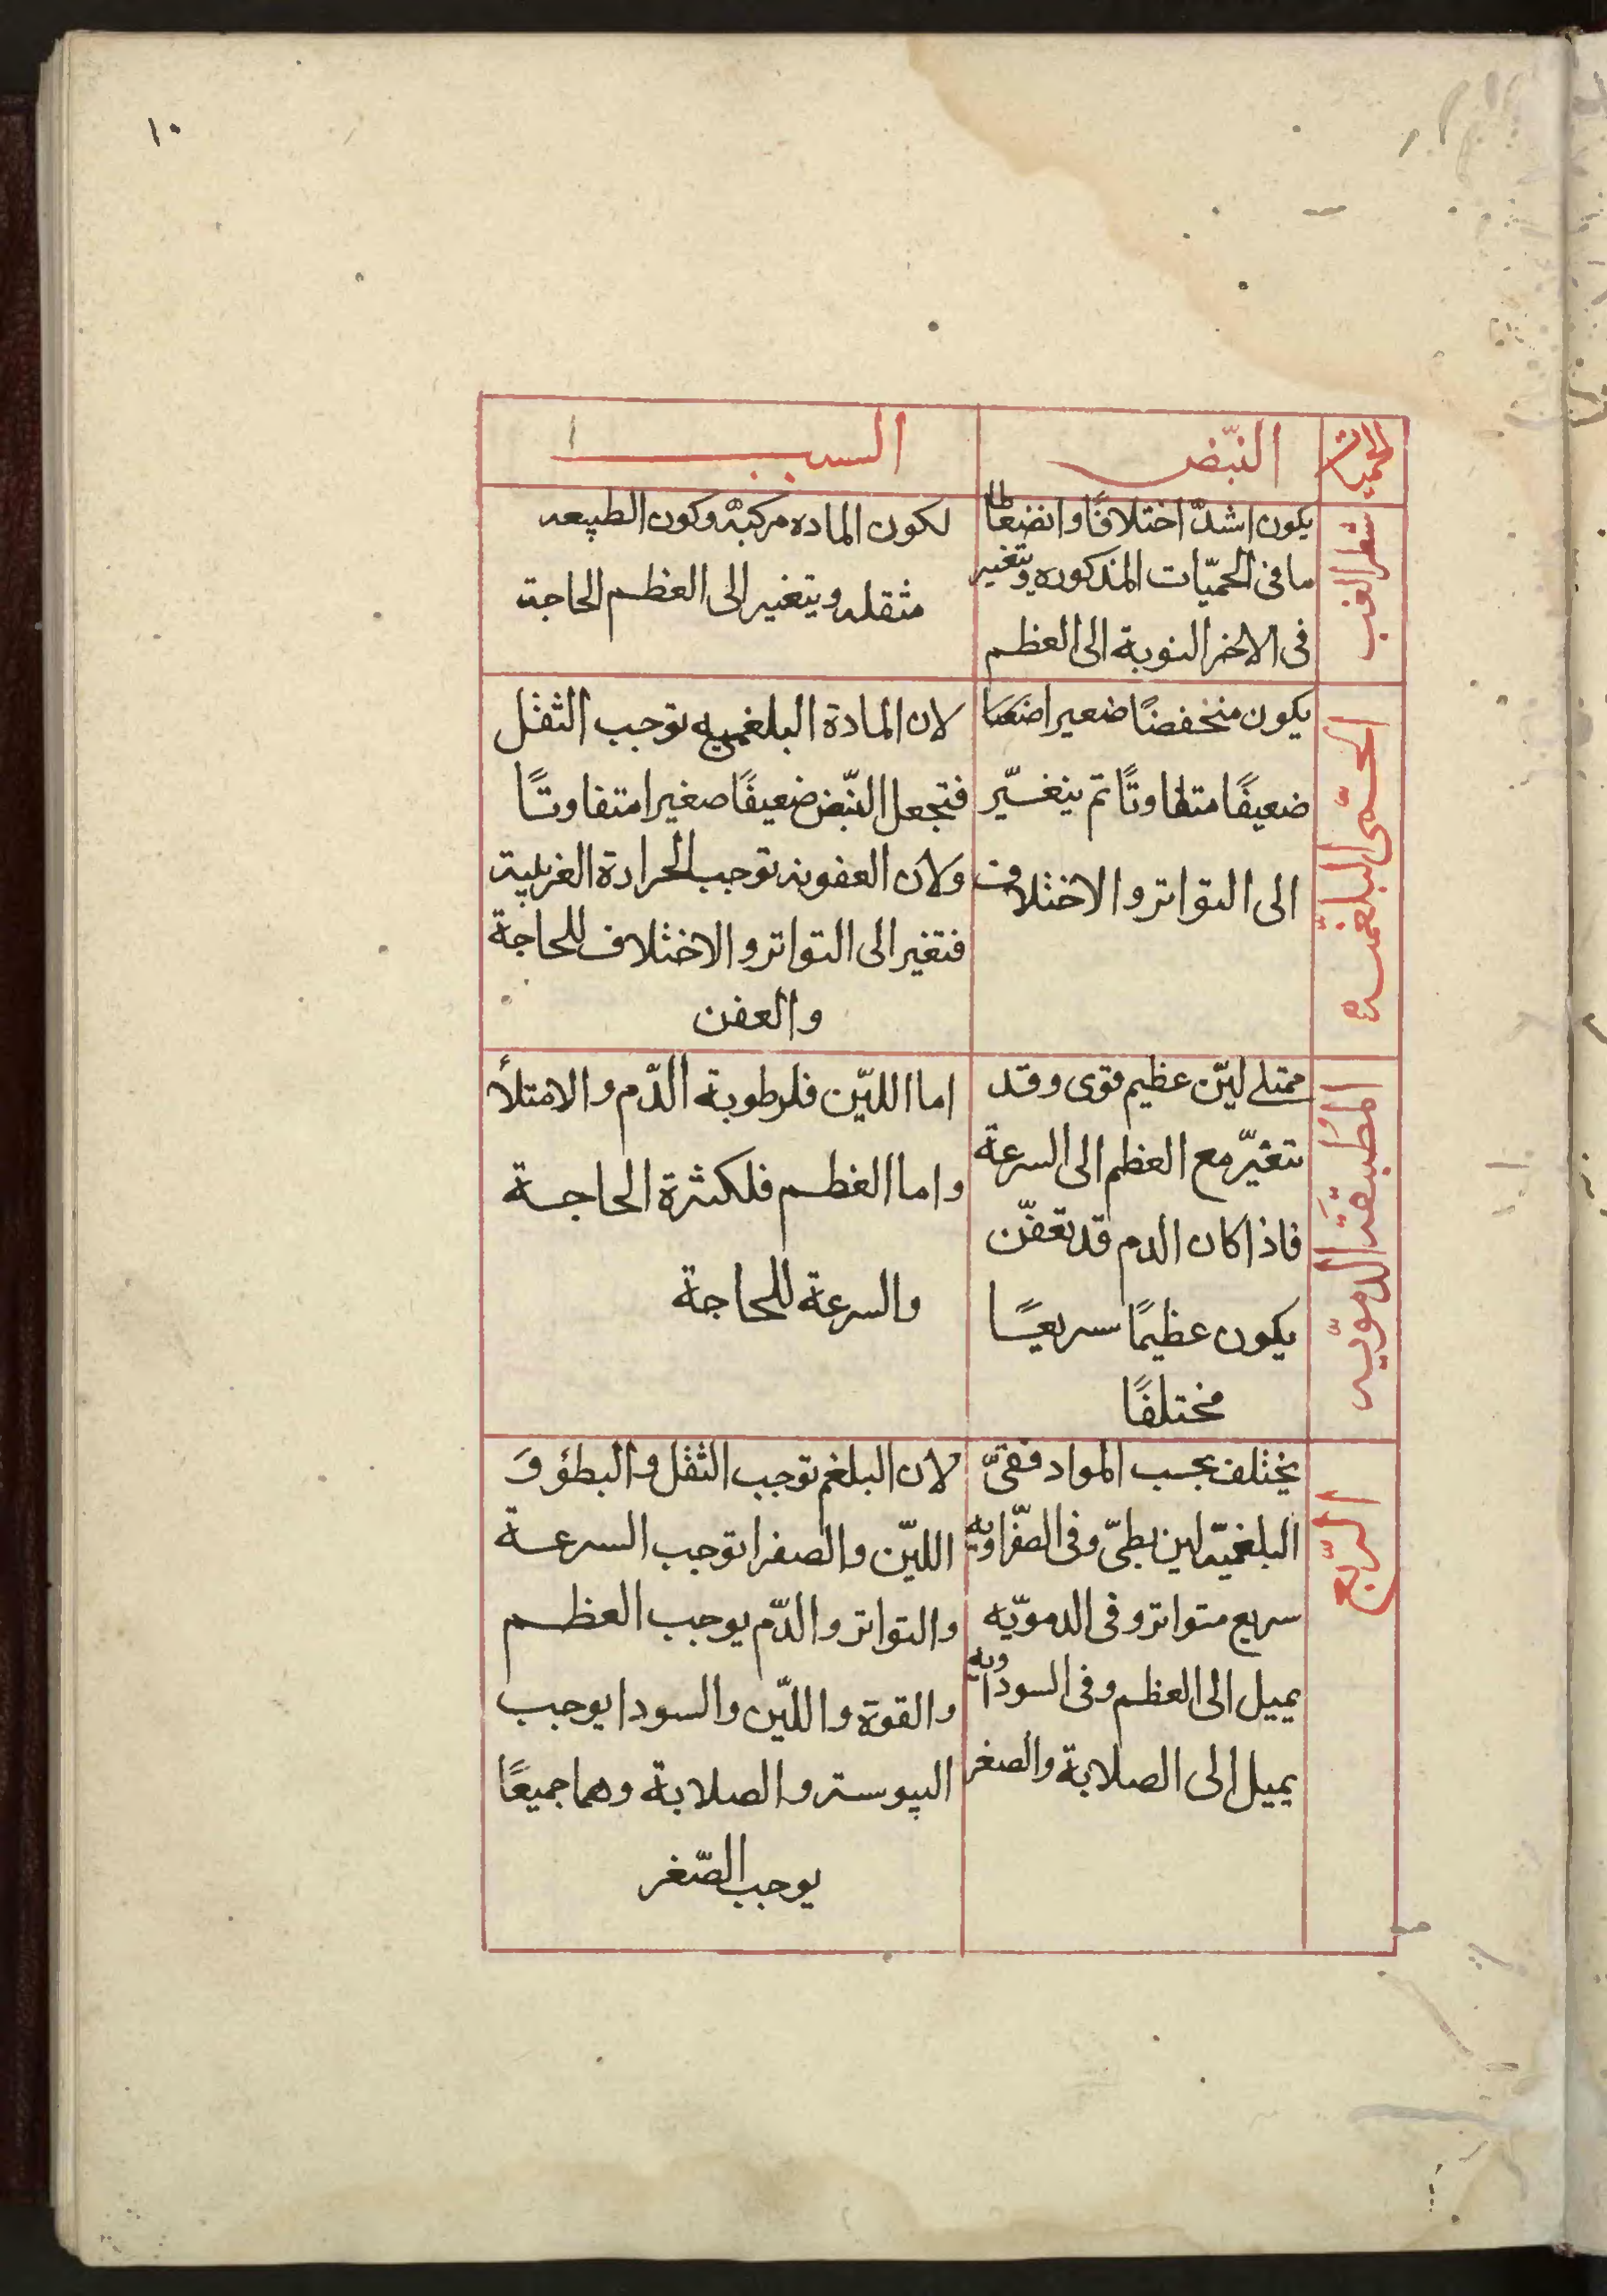 ١٠
الحميات
النبّض
السبب
شطر الغب
يكون اشدّ اختلافًا وانضغاطا
ما فى الحميّات المذكوره ويتغير
فى الاخر النوبة الى العظم
لكون الماده مركبة وكون الطبيعه
مثقله ويتغير الى العظم الحاجة
الحمّى البلغميّه
يكون منخفضًا
ضعيفًا متفاوتًا ثم يتغيّر
الى التواتر والاختلاف
لان المادة البلغميه توجب الثقل
فتجعل النّبض ضعيفًا صغيرا متفاوتًا
ولان العفونه توجب الحرارة الغريبة
فتغير الى التواتر والاختلاف للحاجة
والعفن
المُطبقَة الدمويّه
ممتلى ليّن عظيم قوى وقد
تتغيّر مع العظم الى السرعة
فاذا كان الدم قد تعفّن
يكون عظيمًا سريعًا
مختلفًا
اما اللّين فلرطوبة الدّم والامتلأ
واما العظم فلكثرة الحاجة
والسرعة للحاجة
الرّبع
يختلف بحسب المواد ففىّ
البلغميّة لين بطىّ وفى الصّفراويه
سريع متواتر وفى الدمويّه
يميل الى العظم وفى السوداويه
يميل إلى الصلابة والصغر
لان البلغم توجب الثقل والبطؤ وَ
اللّين والصفرا توجب السرعة
والتواتر والدّم يوجب العظم
والقوة واللّين والسودا يوجب
اليبوسة والصلابة وهما جميعًا
يوجب الصّغر